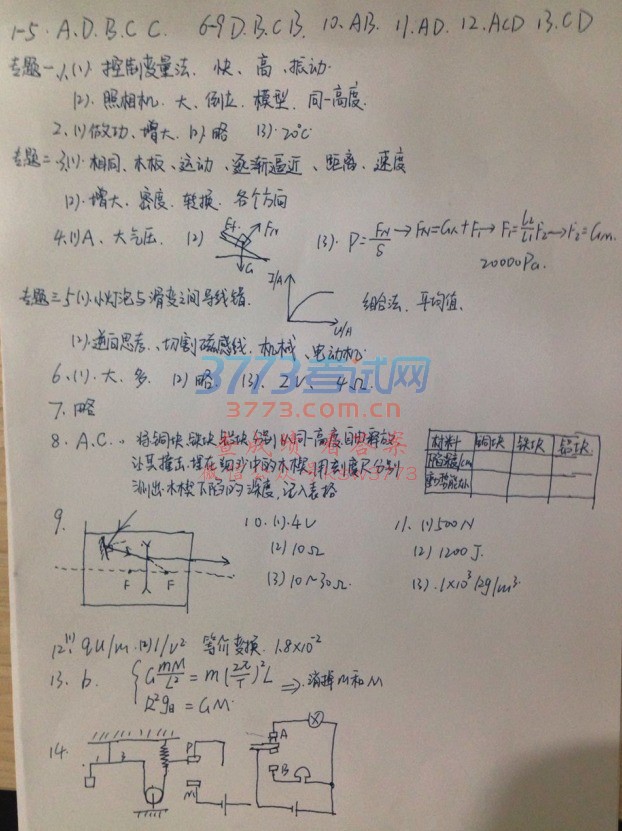 1-5. A.D.B.C C. 6-9 D.B.C B. 10. AB. 11. AD. 12. ACD 13. CD
专题一、1.(1). 控制变量法. 快、高、振动.
(2). 照相机. 大、倒立. 模型. 同一高度.
2.(1)做功、增大. (2)略 (3). 20℃
专题二、3.(1).相同、木板、运动、逐渐逼近、距离、速度
(2).增大、密度. 转换. 各个方向
4.(1)A、大气压. (2) FN G (3). P=FN/S→FN=G人+F1→F1=L2/L1 F2→F2=Gm.
20000Pa.
专题三、5(1).小灯泡与滑变之间导线错. I/A U/A 组合法. 平均值.
(2).逆向思考、切割磁感线、机械、电动机
6、(1).大、多. (2)略 (3). 2V、4Ω.
7. 略
3773考试网
3773.com.cn
8. A.C. 将铜块、铁块、铝块分别从同一高度自由释放
让其撞击埋在细沙中的木楔,用刻度尺分别
测出木楔下陷的深度,记入表格
材料 铜块 铁块 铝块
9. F F 10.(1).4V 11. (1)500N
(2)10Ω (2)1200J.
(3)10~30Ω. (3).1×10³kg/m³.
12.(1) qU/m.(2)1/v² 等价变换. 1.8×10⁻²
13. b. G mM/L² = m(2π/T)²L ⇒消掉m和M
R²g = GM.
14. P M A B